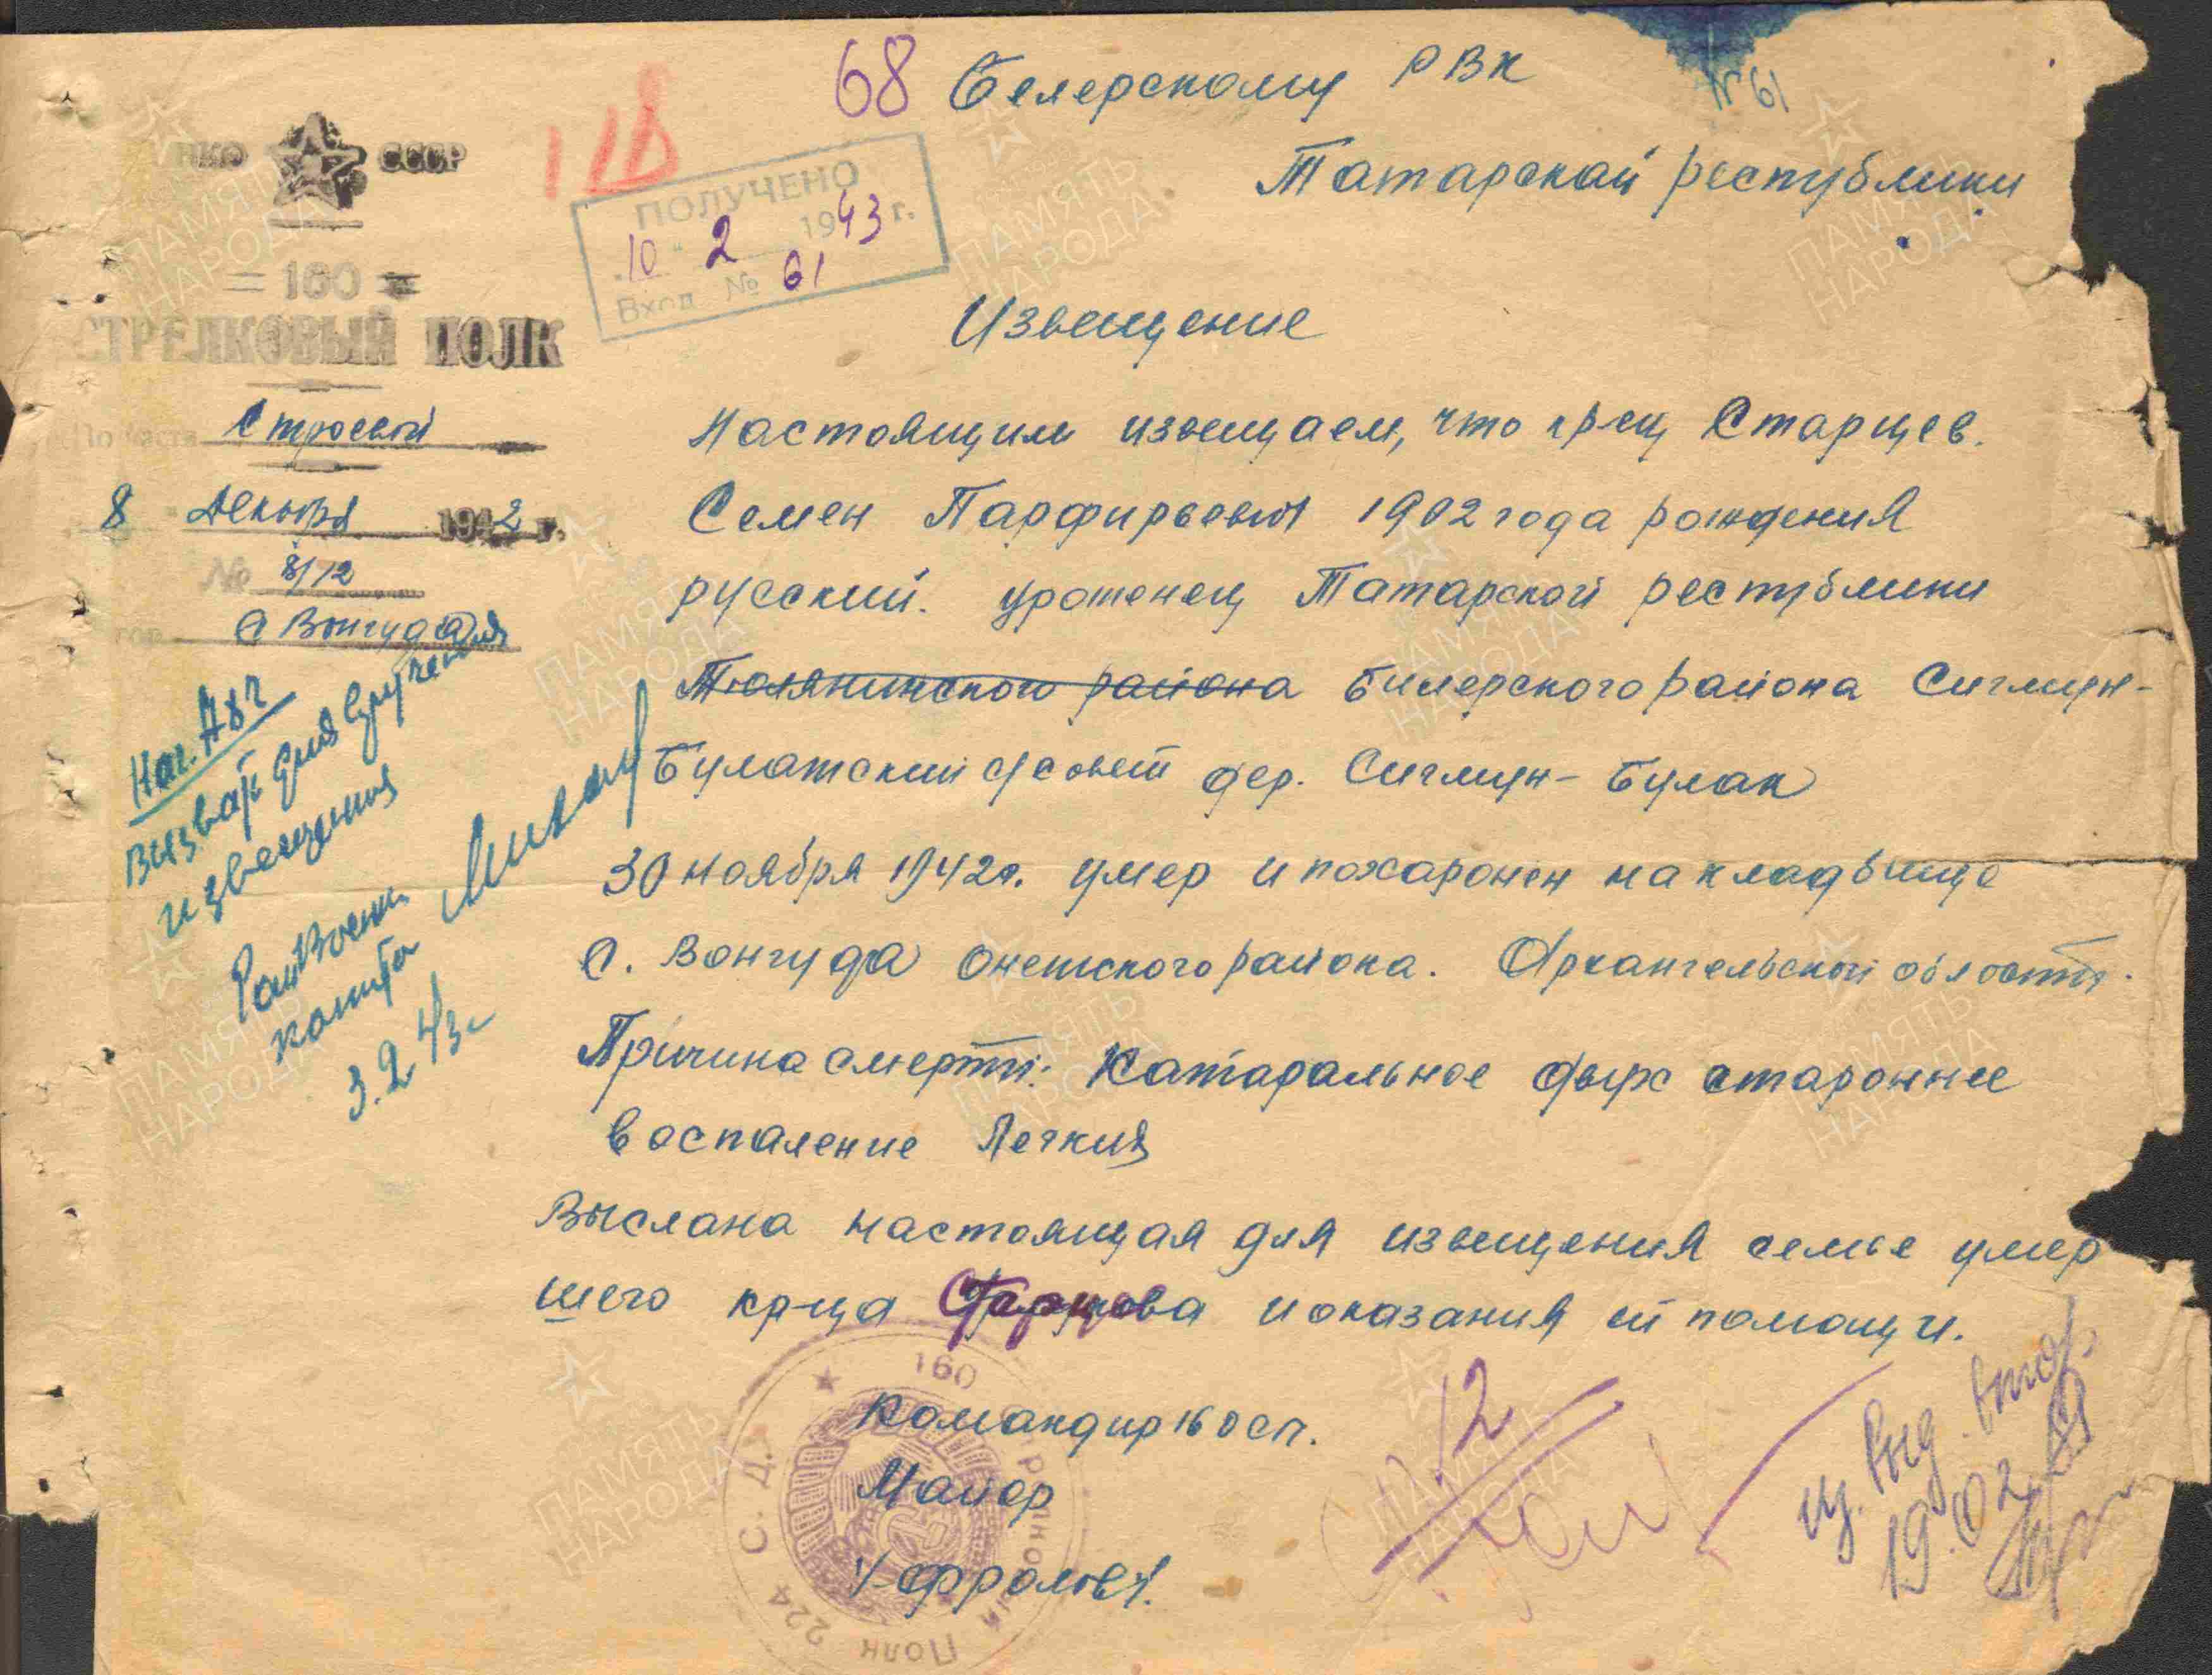 68 Белерскому РВК
№61
Татарской республики
НКО СССР
118
ПОЛУЧЕНО
"10" 2 1943 г.
Вход. № 61
= 160 =
СТРЕЛКОВЫЙ ПОЛК
Извещение
По части Строевой
8 Декабря 1942 г.
№ 8/12
гор. с Вонгуда
Настоящим извещаем, что кр-ец Старцев.
Семен Парфирьевич 1902 года рождения
русский. уроженец Татарской республики
Тюлячинского района Билерского района Сиглиун-
Булатский с/совет дер. Сиглиун-Булак
30 ноября 1942г. умер и похаронен на кладбище
с. Вонгуда Онегского района. Архангельской области.
Причина смерти: Катаральное двухстароннее
воспаление Легких
Выслана настоящая для извещения семье умер
шего кр-ца Старцева и оказания ей помощи.
Командир 160 сп.
Майор
/-Фролов/.
Нач. 4 ч
Вызвать для вручения
извещения
Райвоенком
3.2.43г
160 Стрелковый Полк 224 С. Д.
12
из. выд. втор.
19.02
ПАМЯТЬ
НАРОДА